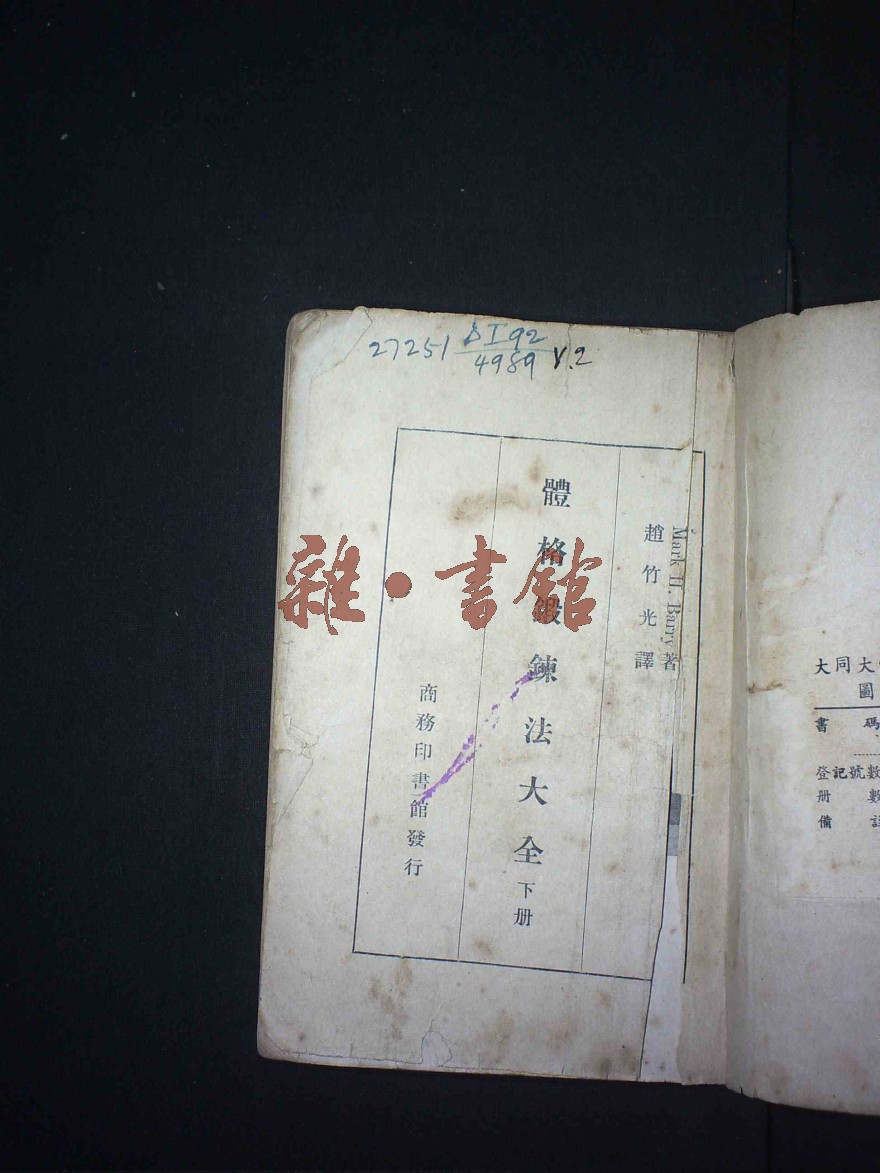 27251 ΔI92
4989 V.2
Mark H. Barry 著
趙竹光譯
體格鍛鍊法大全 下册
商務印書館發行
雜·書館
大同大
圖
書 碼
登記號數
册 數
備